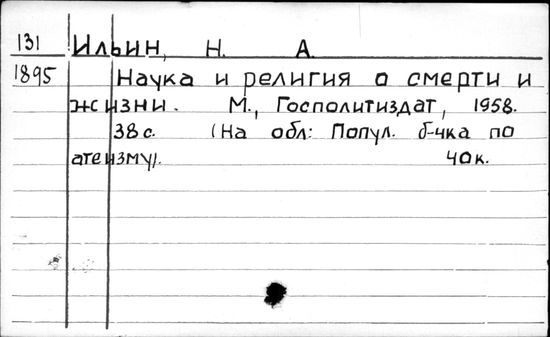 131 Ильин, Н. А.
1895 Наука и религия о смерти и
жизни. М., Госполитиздат, 1958.
38 с. (На обл: Попул. б-чка по
атеизму). 40к.